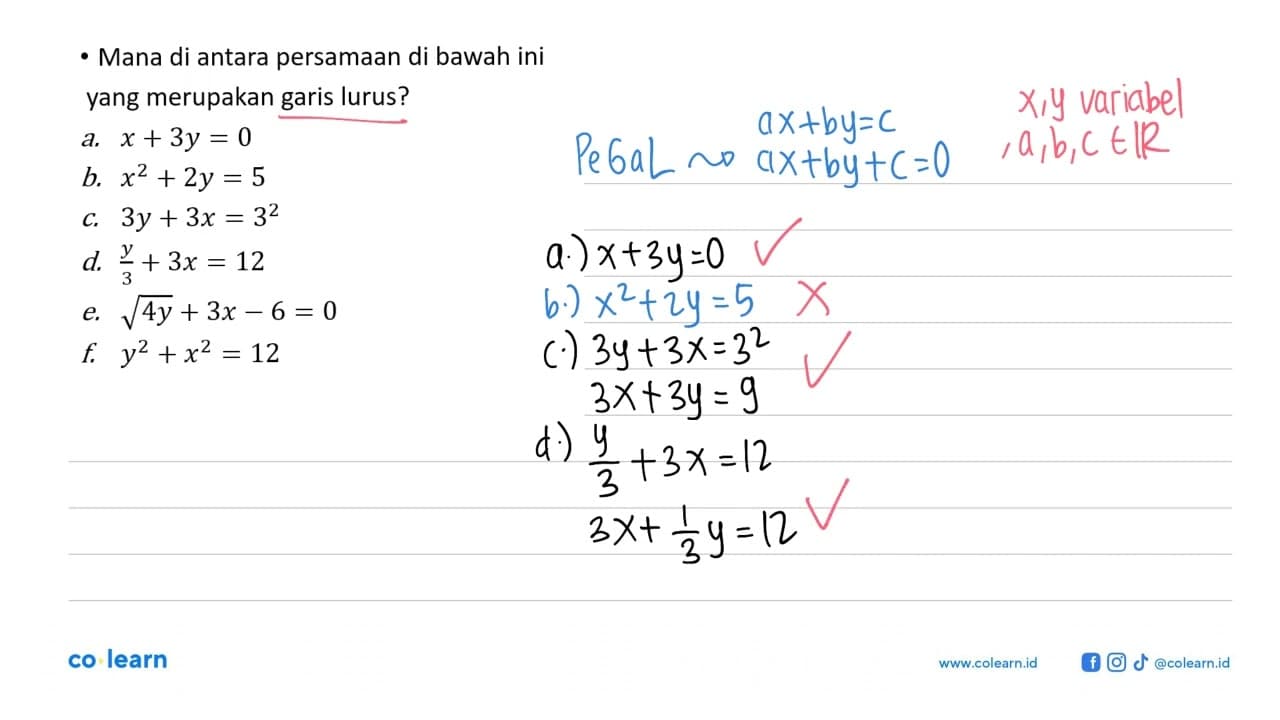 • Mana di antara persamaan di bawah ini
yang merupakan garis lurus?
a. x + 3y = 0
b. x² + 2y = 5
c. 3y + 3x = 3²
d. y/3 + 3x = 12
e. √4y + 3x − 6 = 0
f. y² + x² = 12
PeGaL ~> ax+by=c
ax+by+c=0
x,y variabel
, a,b,c ∈ ℝ
a.) x+3y=0 ✓
b.) x²+2y=5 X
c.) 3y+3x=3²
3x+3y=9 ✓
d.) y/3 +3x=12
3x+1/3y=12 ✓
co·learn
www.colearn.id
@colearn.id